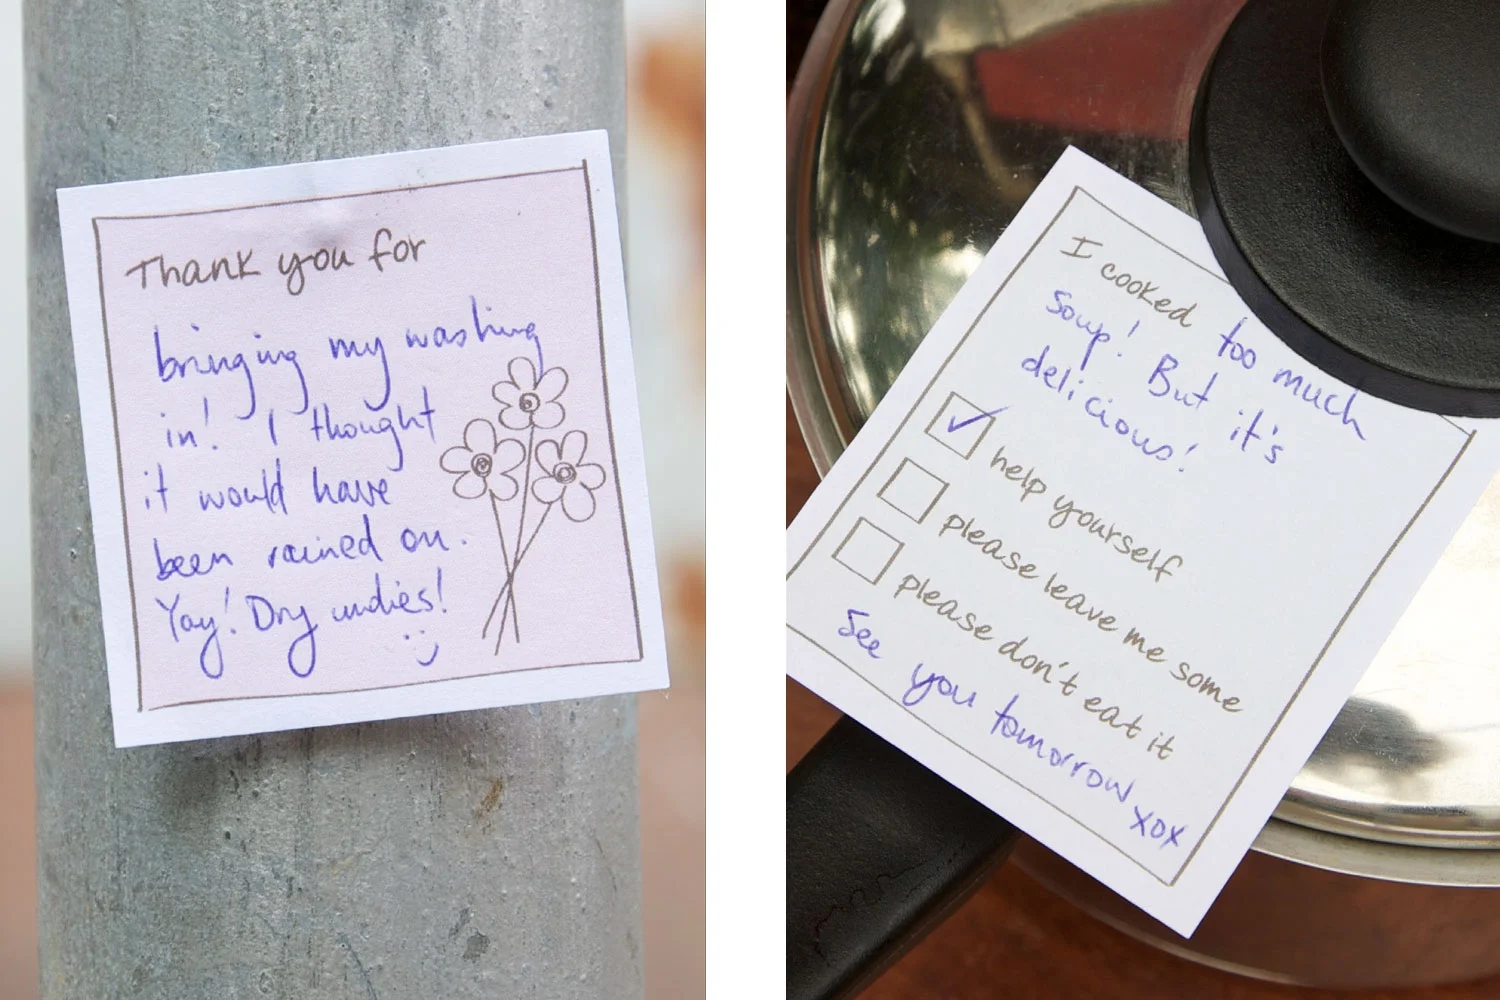 Thank you for
bringing my washing
in! I thought
it would have
been rained on.
Yay! Dry undies!
I cooked too much
Soup! But it's
delicious!
help yourself
please leave me some
please don't eat it
See you tomorrow
xox